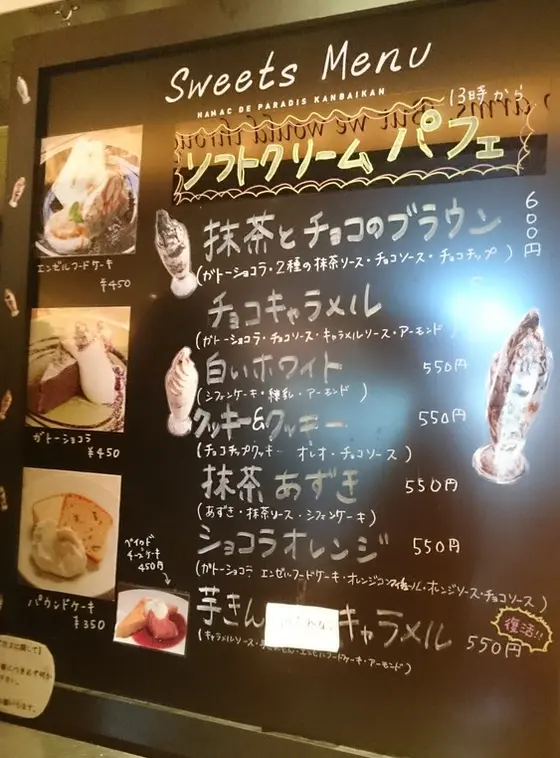 Sweets Menu
HAMAC DE PARADIS KANBAIKAN
13時から
ソフトクリーム パフェ
抹茶とチョコのブラウン 600円
(ガトーショコラ・2種の抹茶ソース・チョコソース・チョコチップ)
チョコキャラメル
(ガトーショコラ・チョコソース・キャラメルソース・アーモンド
白いホワイト 550円
(シフォンケーキ・練乳・アーモンド)
クッキー&クッキー 550円
(チョコチップクッキー オレオ・チョコソース)
抹茶あずき 550円
(あずき・抹茶ソース・シフォンケーキ)
ショコラオレンジ 550円
(ガトーショコラ エンゼルフードケーキ・オレンジ オレンジソース・チョコソース)
芋きん キャラメル 550円
復活!!
(キャラメルソース・ エンゼルフードケーキ・アーモンド)
エンゼルフードケーキ
¥450
ガトーショコラ
¥450
パウンドケーキ
¥350
ベイクド
チーズケーキ
450円